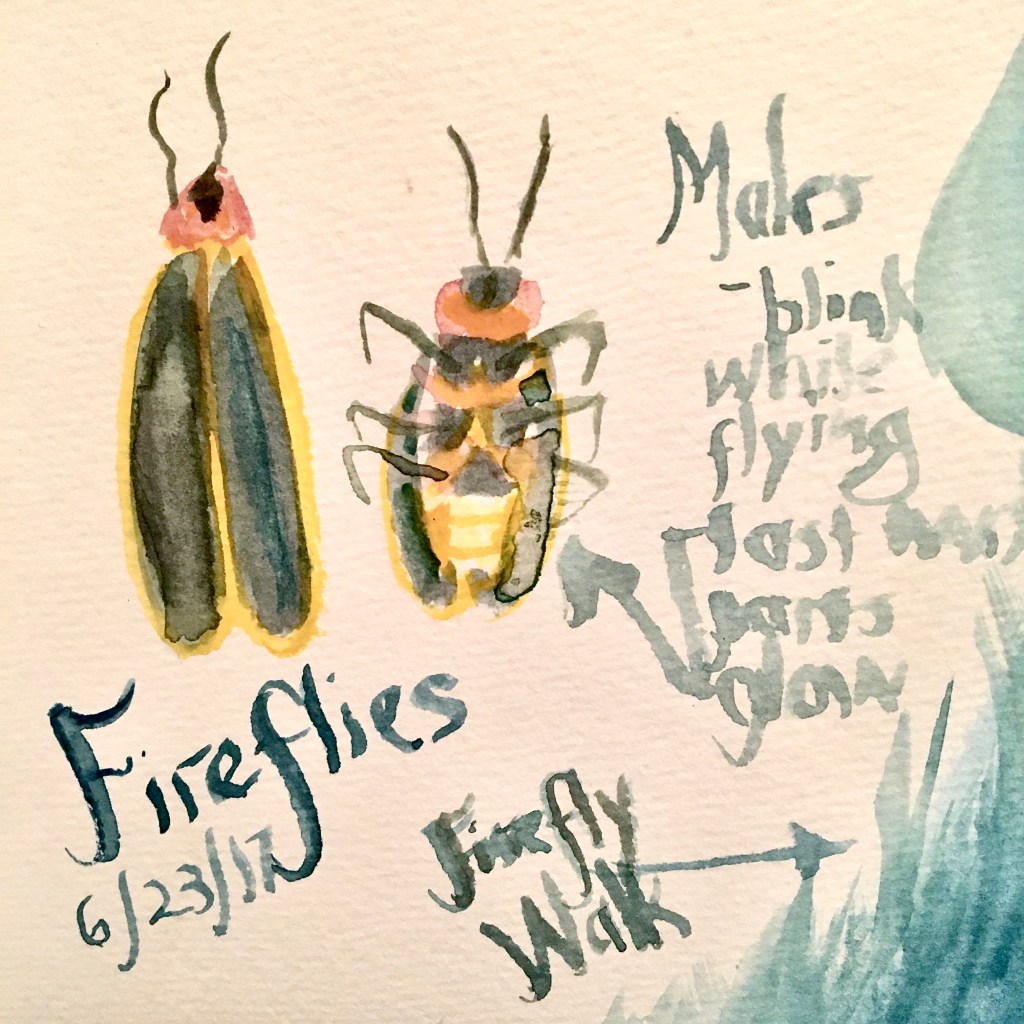 Males
-blink
while
flying
last two
parts
glow
Fireflies
6/23/17
Firefly
Walk